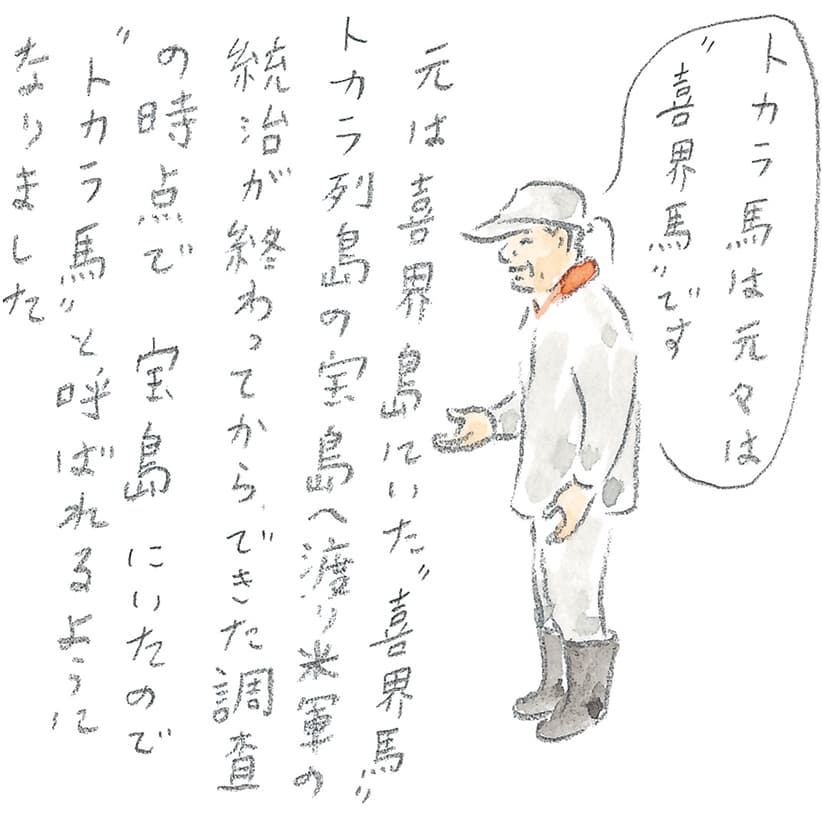 トカラ馬は元々は
"喜界馬"です
元は喜界島にいた"喜界馬"
トカラ列島の宝島へ渡り米軍の
統治が終わってから、できた調査
の時点で 宝島 にいたので
"トカラ馬"と呼ばれるように
なりました